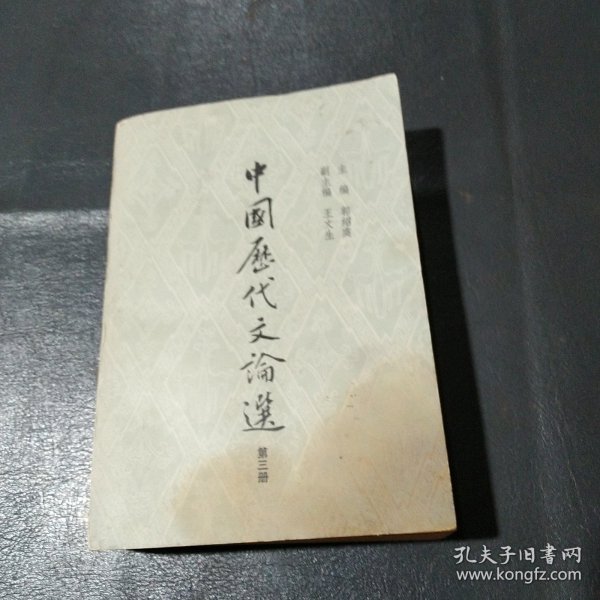 主編 郭紹虞
副主編 王文生
中國歷代文論選
第三册
孔夫子旧書网
www.kongfz.com